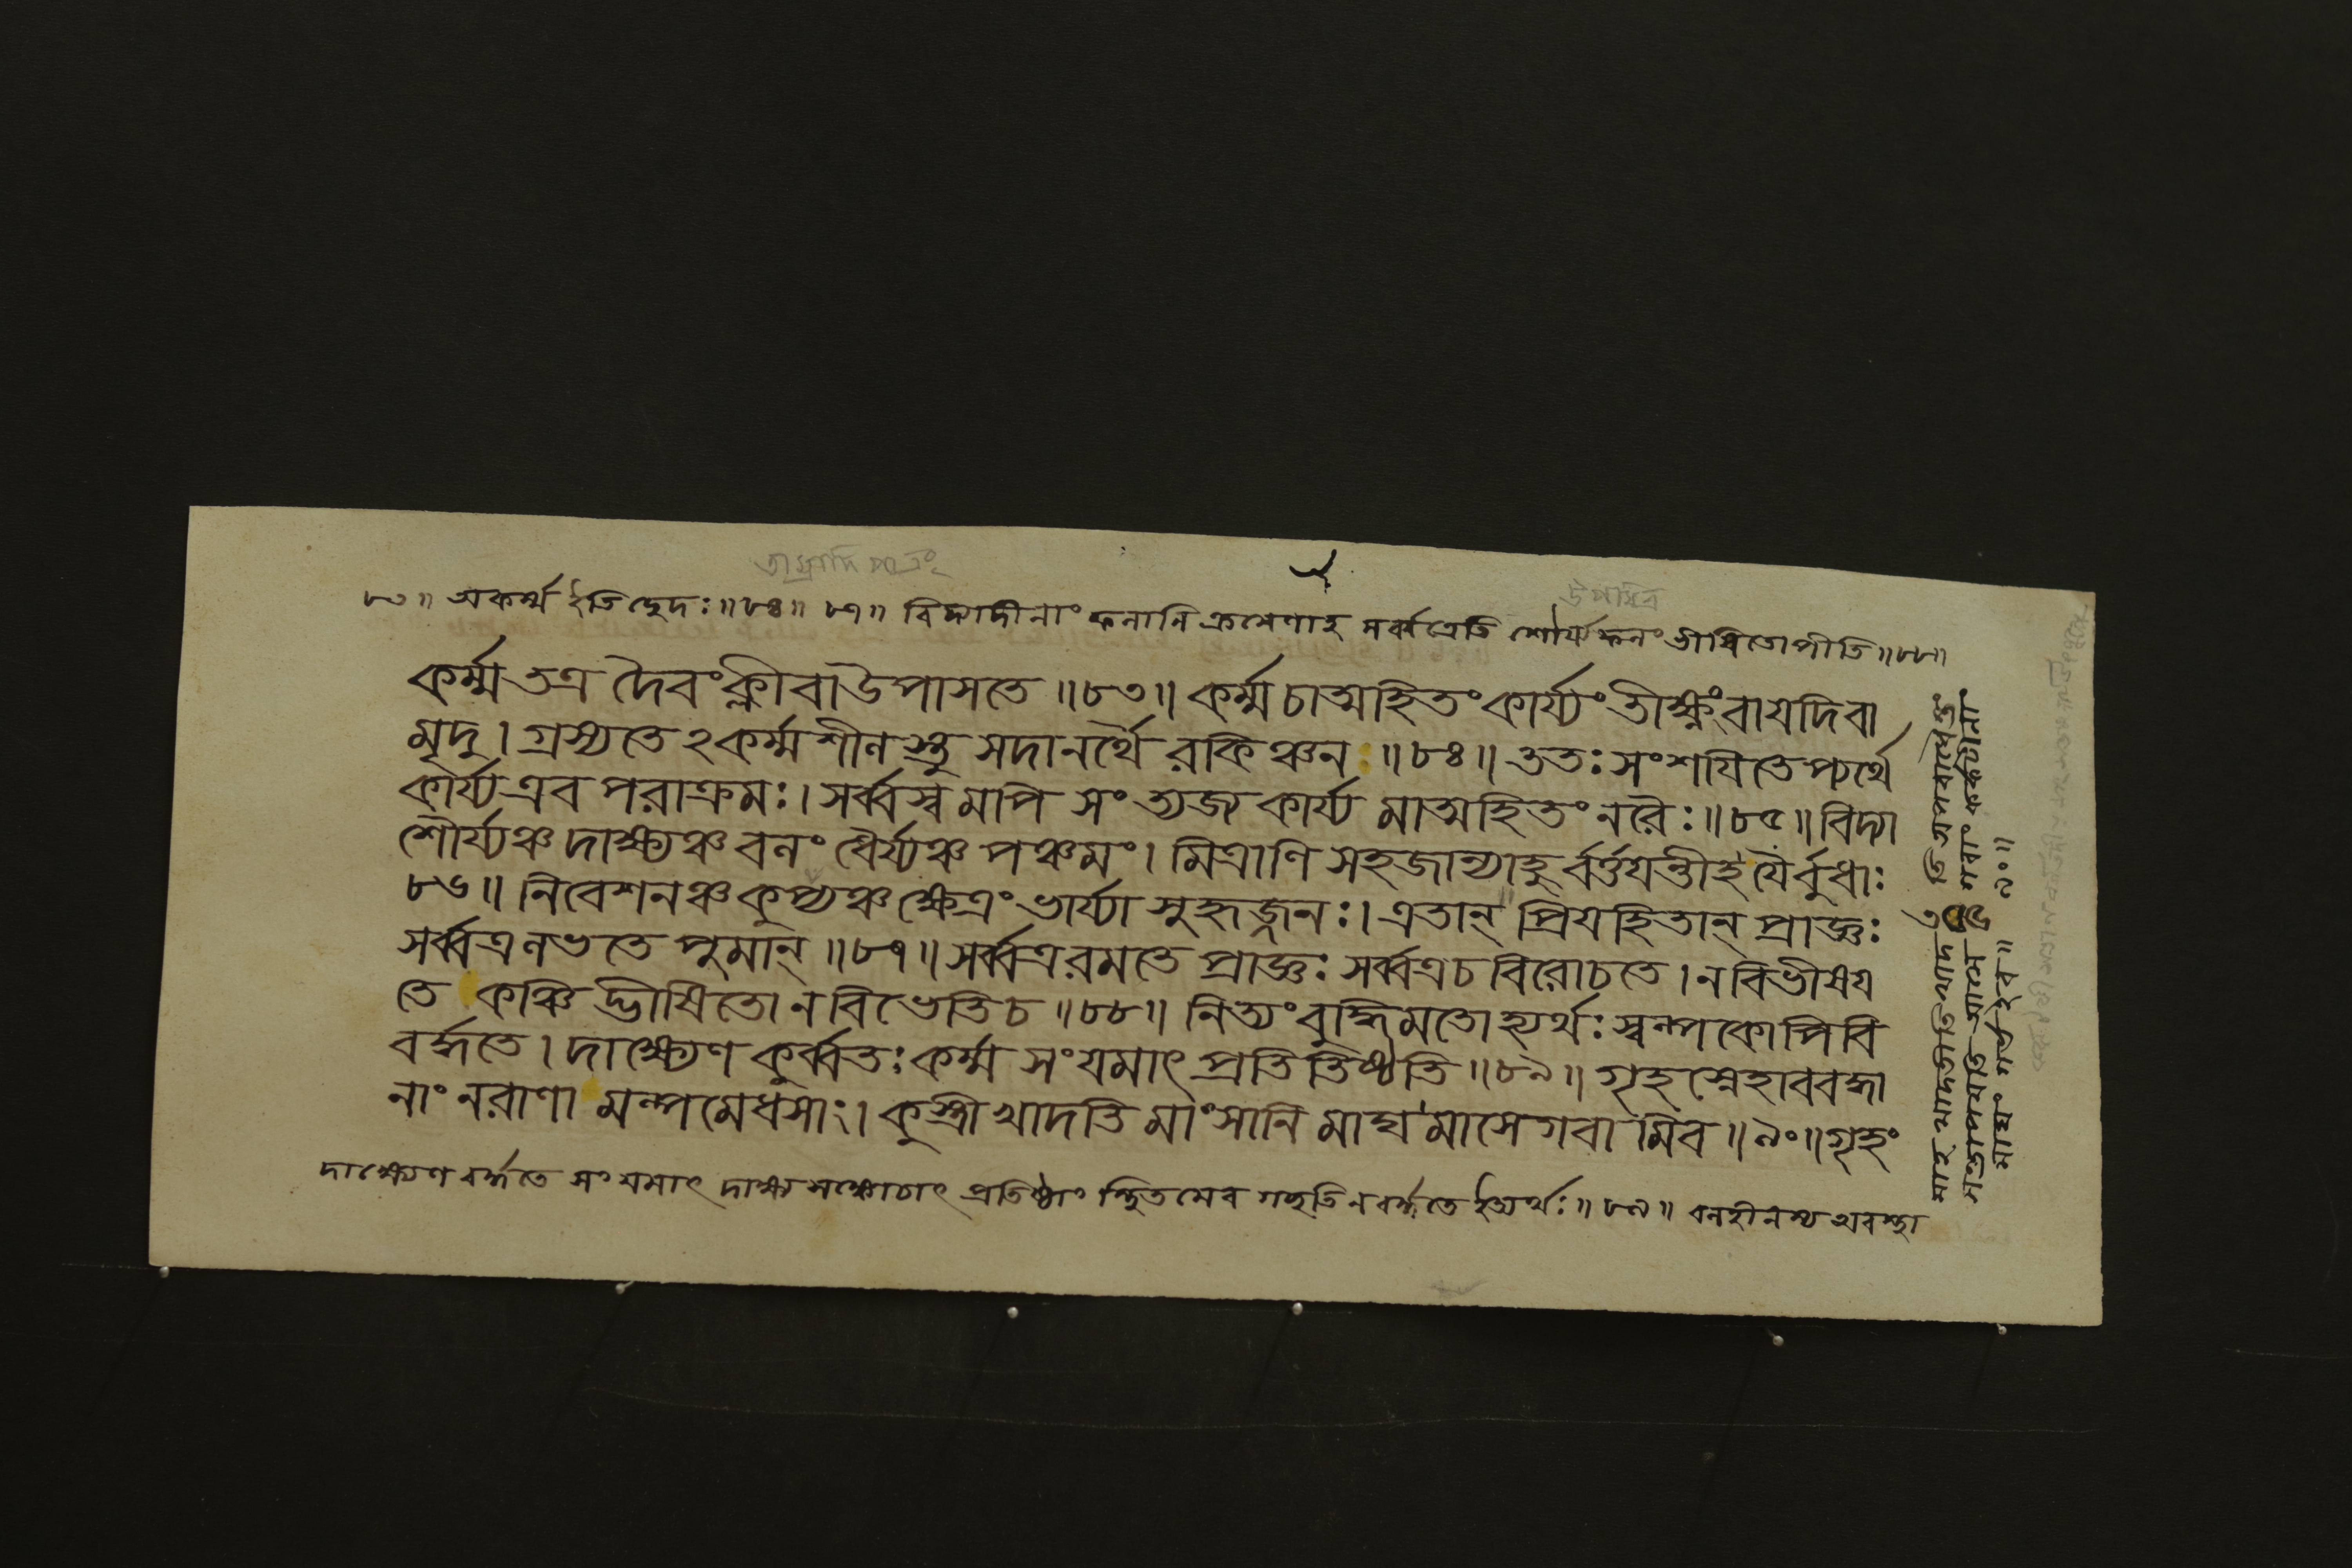 ৮৩॥ অকর্ম্ম ইতিছেদঃ॥৮৪॥ ৮৭॥ বিদ্যাদীনাং ফলানি ক্রমেণাহ সর্ব্বত্রেতি শৌর্য্যফলং ভীষিতোপীতি॥৮৮॥
কর্ম্ম তত্র দৈবং ক্লীবা উপাসতে॥৮৩॥ কর্ম্ম চাত্মহিতং কার্য্যং তীক্ষ্ণং বা যদি বা
মৃদু। গ্রস্যতে ঽকর্ম্মশীলস্তু সদানর্থৈ রকিঞ্চনঃ॥৮৪॥ ততঃ সংশযিতেপ্যর্থে
কার্য্য এব পরাক্রমঃ। সর্ব্বস্ব মপি সংত্যজ্য কার্য্য মাত্মহিতং নরৈঃ॥৮৫॥ বিদ্যা
শৌর্য্যঞ্চ দাক্ষ্যঞ্চ বলং ধৈর্য্যঞ্চ পঞ্চমং। মিত্রাণি সহজান্যাহু র্বর্ত্তযন্তীহ যৈর্বুধাঃ
৮৬॥ নিবেশনঞ্চ কুপ্যঞ্চ ক্ষেত্রং ভার্য্যা সুহৃজ্জনঃ। এতান্ প্রিযহিতান্ প্রাজ্ঞঃ
সর্ব্বত্র লভতে পুমান্॥৮৭॥ সর্ব্বত্র রমতে প্রাজ্ঞঃ সর্ব্বত্র চ বিরোচতে। ন বিভীষয
তে কঞ্চি দ্ভীষিতো ন বিভেতি চ॥৮৮॥ নিত্যং বুদ্ধিমতোহ্যর্থঃ স্বল্পকোপি বি
বর্দ্ধতে। দাক্ষ্যেণ কুর্ব্বতঃ কর্ম্ম সংযমাৎ প্রতিতিষ্ঠতি॥৮৯॥ গৃহস্নেহাববদ্ধা
নাং নরাণা মল্পমেধসাং। কুস্ত্রী খাদতি মাংসানি মাঘমাসে গবা মিব॥৯০॥ গৃহং
দাক্ষ্যেণ বর্দ্ধতে সংযমাৎ দাক্ষ্যসঙ্কোচাৎ প্রতিষ্ঠাং স্থিতমেব গচ্ছতি ন বর্দ্ধতে ইত্যর্থঃ॥৮৯॥ বলহীনস্য অবস্থা
গবাং কর্কটীনাং
৯০॥